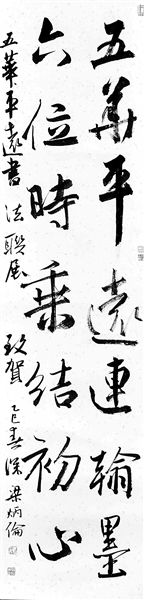 五華平遠連翰墨
六位時乗結初心
五華平遠書法聯展致賀
乙巳春深梁炳倫